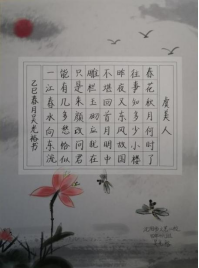 虞美人
春花秋月何时了
往事知多少小楼
昨夜又东风故国
不堪回首月明中
雕栏玉砌应犹在
只是朱颜改问君
能有几多愁恰似
一江春水向东流
乙巳春月吴光裕书